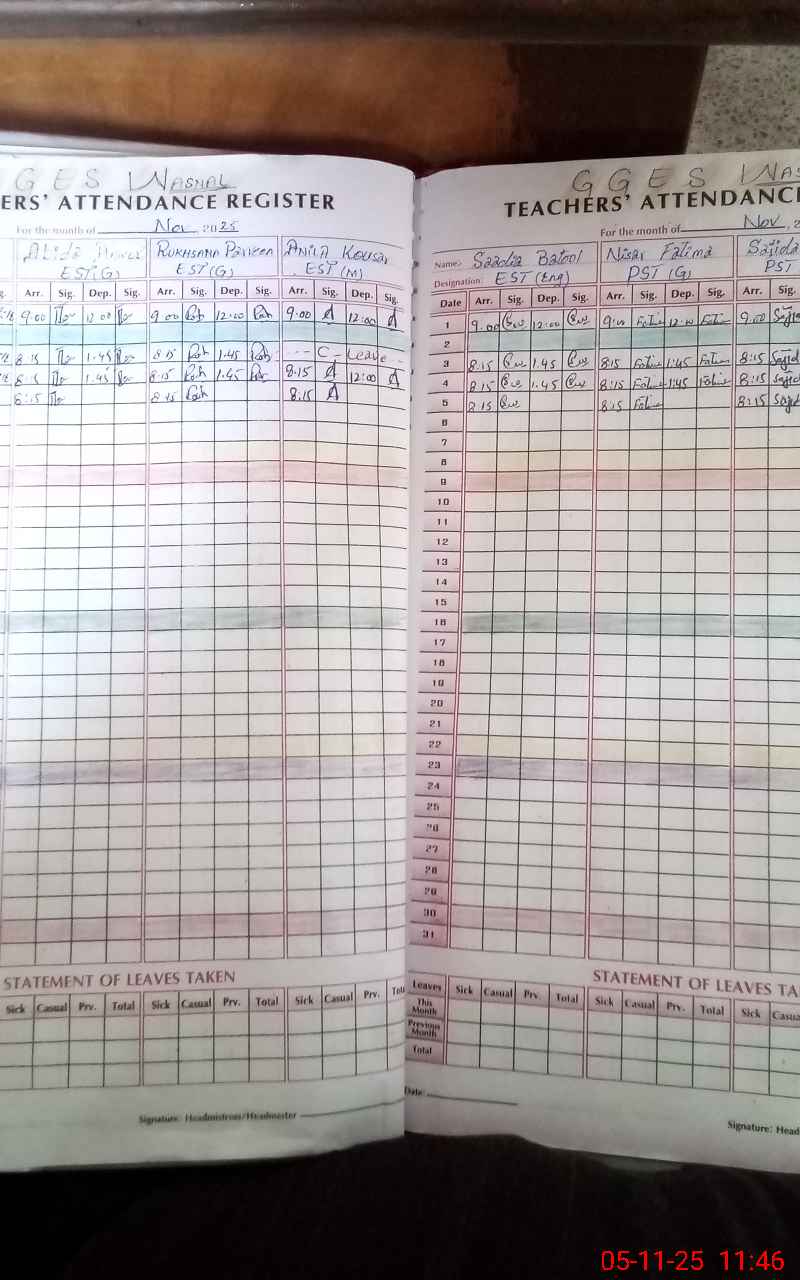 G G E S WASNAL
ERS' ATTENDANCE REGISTER
For the month of Nov, 2025
Abida RUKHSANA Parveen ANILA Kousar
EST(G) EST(G) EST(M)
g. Arr. Sig. Dep. Sig. Arr. Sig. Dep. Sig. Arr. Sig. Dep. Sig.
9.00 12.00 9.00 12:00 9.00 A 12:00 A
8.15 1.45 8.15 1.45 C - Leave
8.15 1.45 8.15 1.45 8.15 A 12:00 A
8:15 8.15 8:15 A
STATEMENT OF LEAVES TAKEN
Sick Casual Prv. Total Sick Casual Prv. Total Sick Casual Prv. Tot
Signature: Headmistress/Headmaster
G G E S WAS
TEACHERS' ATTENDANC
For the month of Nov, 2
Name: Saadia Batool Nisar Fatima Sajida
Designation: EST (Eng) PST (G) PST
Date Arr. Sig. Dep. Sig. Arr. Sig. Dep. Sig. Arr. Sig.
1 9.00 12:00 9:00 12:00 9.00
2
3 8.15 1.45 8:15 1:45 8:15
4 8.15 1.45 8:15 1:45 8:15
5 8.15 8:15 8:15
6
7
8
9
10
11
12
13
14
15
16
17
18
19
20
21
22
23
24
25
26
27
28
29
30
31
STATEMENT OF LEAVES TA
Leaves Sick Casual Prv. Total Sick Casual Prv. Total Sick Casua
This Month
Previous Month
Total
Date:
Signature: Head
05-11-25 11:46